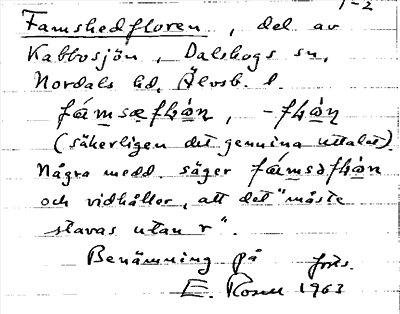 1-2
Famshedfloren, del av
Kabbosjön, Dalskogs sn,
Nordals hd, Älvsb. l.
(säkerligen det genuina uttalet)
Några medd. säger
och vidhåller, att det "måste
stavas utan r".
Benämning på forts.
E. Rosell 1963